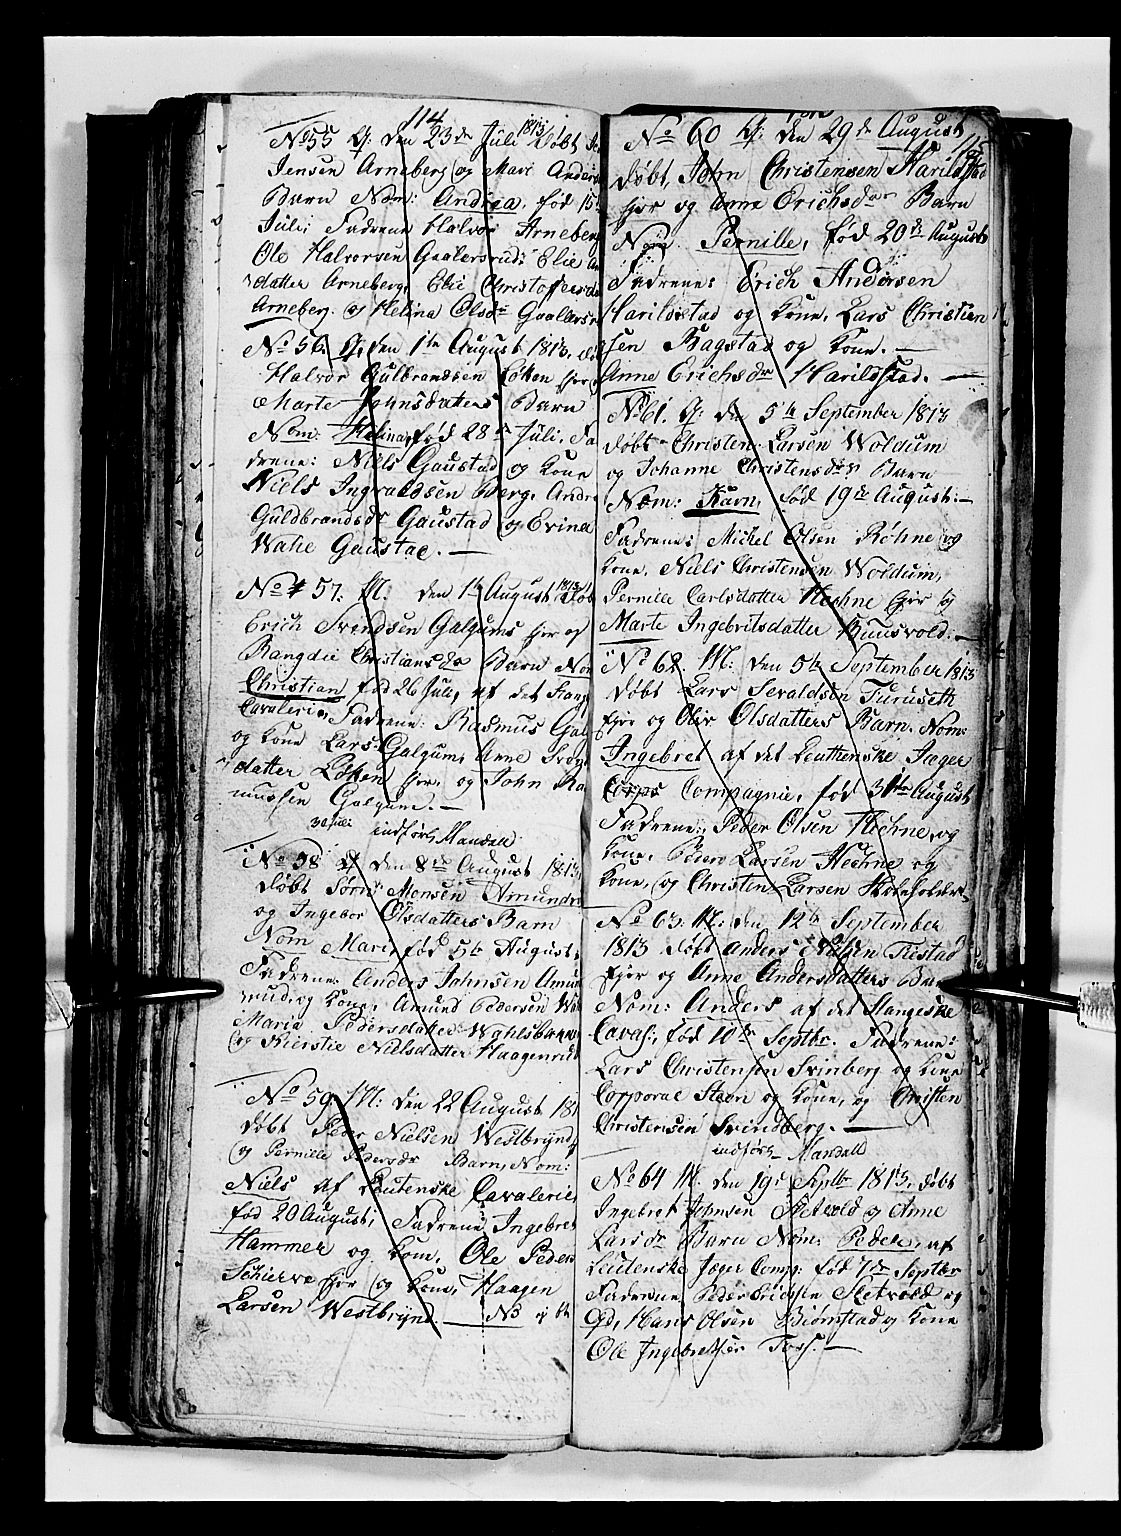 114
No 55 Q: den 23de Juli 1813 döbt
Jensen Arneberg og Mari Anders
Barn Nom: Andrea, föd 15
Juli; Fadrene Halvor Arneberg
Ole Halvorsen Gaalersrud; Elie
datter Arneberg, Elie Christoffersda
Arneberg. og Helina Olsdr Gaalersr
No 56. Q. den 1te August 1813,
Halvor Gulbrandsen Löken hjer
Marte Johnsdatters Barn
Nom: Helina, föd 28de Juli. Fa
drene: Niels Gaustad og Kone
Niels Ingvaldsen Berg, Andr
Guldbrandsdr Gaustad og Evina
Gaustad. —
No 57. M. den 1te August 1813 Döb
Erich Svendsen Galgums hjer og
Rangdie Christiansdr Barn Nom
Christian, föd 26 Juli, af det Stang
Cavalerie, Fadrene: Rasmus Gal
og Kone Lars Galgum, Anne Svend
datter Löken hjer, og John Ra
mussen Galgum. —
30 Juli indförs Mandall
No 58 Q den 8de August 1813
Döbt Sörn Monsen Amundr
og Ingebor Olsdatters Barn
Nom Mari, föd 5te August.
Fadrene Anders Johnsen Amun
rud, og Kone, Amund Pedersen
Maria Pedersdatter
og Kierstie Nielsdatter Haagenrud
No 59 M: den 22 August 181
döbt Peder Nielsen Westbrynd
og Pernille Pedersdr Barn, Nom:
Niels af Leutenske Cavalerie,
föd 20 August; Fadrene Ingebret
Hammer og Kone, Ole Peders
Schierve hjer og Kone, Haagen
Larsen Westbrynd. — N3
115
No 60 Q: den 29de August
döbt, John Christensen Harildstad
hjer og Anne Erichsdrs Barn
Nom Pernille, föd 20de August
Fadrene: Erich Andersen
Harildstad og Kone, Lars Christian
sen Bagstad og Kone. —
Anne Erichsdr Harildstad. —
No 61. Q: den 5te September 1813
döbt Christen Larsen Woldum
og Johanne Christensdrs Barn
Nom: Karn, föd 19de August. —
Fadrene: Michel Olsen Röhne og
Kone, Niels Christensen Woldum,
Pernille Carlsdatter Hechne hjer og
Marte Ingebritsdatter Kuusvold. —
No 62 M: den 5te September 1813
döbt Lars Sevaldsen Furuseth
hjer og Oliv Olsdatters Barn. Nom:
Ingebret af det Leuthenske Jæger
Corps Compagnie, föd 31te August
Fadrene: Peder Olsen Hechne, og
Kone, Peder Larsen Hechne og
Kone, og Christen Larsen
No 63: M: den 12te September
1813 döbt Anders Nilsen Fiistad
hjer og Anne Andersdatters Barn
Nom: Anders af det Stangeske
Caval:, föd 10de Septbr. Fadrene:
Lars Christensen Svinberg og Kone
Corporal Steen og Kone, og Christen
Christensen Svindberg. —
indförs Mandall
No 64 M. den 19de Septb 1813, döbt
Ingebret Johnsen Setvold og Anne
Larsdr Barn Nom: Peder, af
Leutenske Jæger Comp: föd 7de Septbr
Fadrene Peder Erichsen Setvold og
Qd, Hans Olsen Biörnstad og Kone
Ole Ingebretsen Torp. —